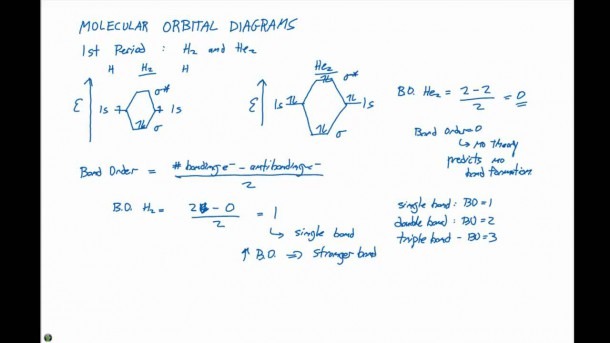 MOLECULAR ORBITAL DIAGRAMS
1st Period : H₂ and He₂
H H₂ H
He₂
σ*
σ*
Ɛ 1s 1s
Ɛ 1s 1s
σ
σ
B.O. He₂ = 2-2 / 2 = 0
Bond Order=0
↳ MO theory
predicts no
bond formation
Bond Order = # bonding e⁻ - antibonding e⁻ / 2
B.O. H₂ = 2 - 0 / 2 = 1
↳ single bond
↑ B.O. ⇒ stronger bond
single bond : BO=1
double bond : BO=2
triple bond - BO=3